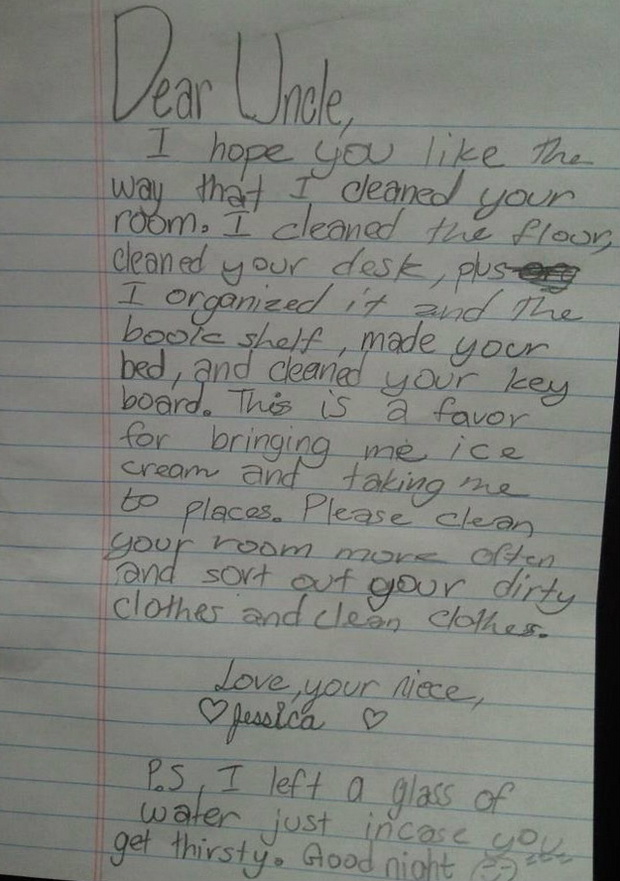 Dear Uncle,
I hope you like the
way that I cleaned your
room. I cleaned the floor,
cleaned your desk, plus
I organized it and the
book shelf, made your
bed, and cleaned your key
board. This is a favor
for bringing me ice
cream and taking me
to places. Please clean
your room more often
and sort out your dirty
clothes and clean clothes.
Love, your niece,
♡ Jessica ♡
P.S, I left a glass of
water just incase you
get thirsty. Good night